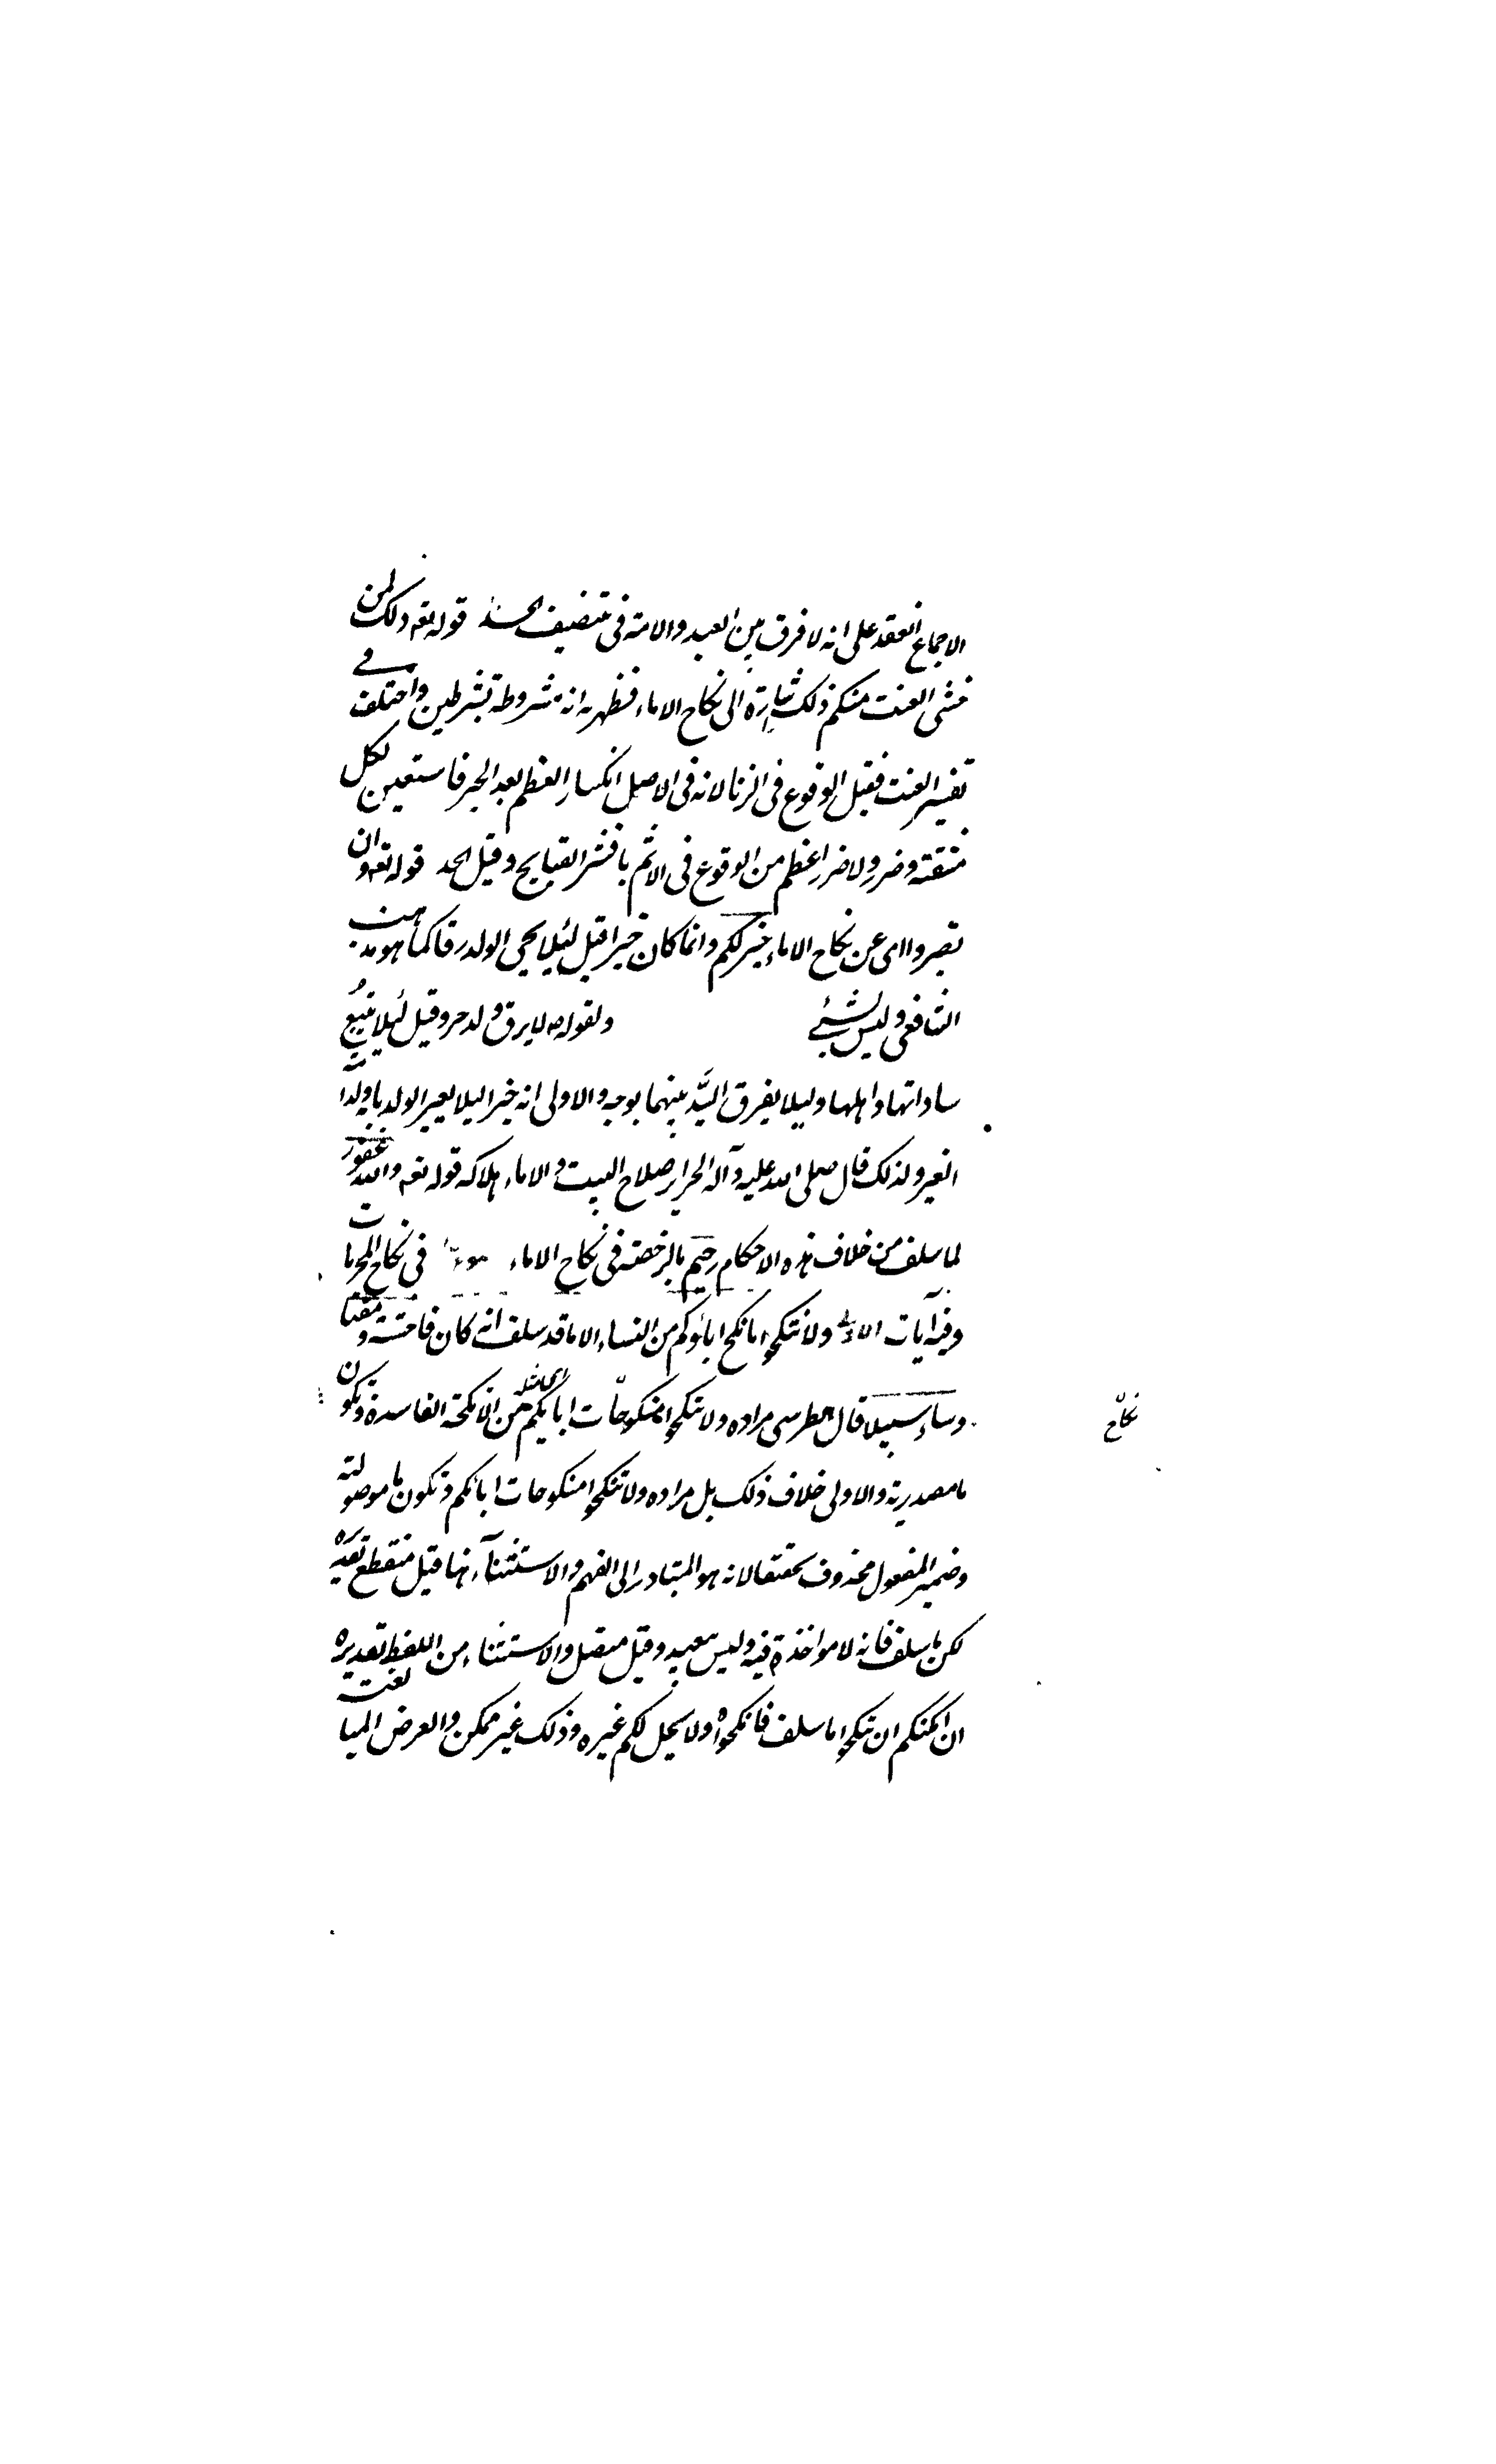 الاجماع انعقد على انه لا فرق بين العبد والامة فى تنصيف الحد قوله تعه ذلك لمن
خشى العنت منكم ذلك اشارة الى نكاح الاماء فظهر انه مشروطة بشرطين واختلف فى
تفسير العنت فقيل الوقوع فى الزنا لانه فى الاصل انكسار العظم بعد الجبر فاستعير لكل
مشقة وضرر ولا ضرر اعظم من الوقوع فى الاثم بافحش القبايح وقيل الحد قوله تعه وان
تصبروا اى عن نكاح الاماء خير لكم وانما كان خيرا قيل لئلا يجئ الولد رقا كما هو مذهب
الشافعى وليس بشئ ولقوله ص لا يرق ولد حر وقيل لئلا يتبع
ساداتها واهلها وليلا يفرق السيد بينهما بوجه والاولى انه خيرا ليلا يعير الولد
الغير ولذلك قال صلى الله عليه وآله الحراير صلاح البيت والاماء هلاكه قوله تعه والله غفور
لما سلف من خلاف هذه الاحكام رحيم بالرخصة فى نكاح الاماء فى نكاح المحرمات
وفيه آيات الاولى ولا تنكحوا ما نكح اباؤكم من النساء الا ما قد سلف انه كان فاحشة ومقتا
وساء سبيلا قال الطبرسى مراده ولا تنكحوا منكوحات ابايكم من الانكحة الفاسدة وتكون
نكاح
ما مصدرية والاولى خلاف ذلك بل مراده ولا تنكحوا منكوحات ابائكم وتكون ما موصولة
وضمير المفعول محذوف تحققا لانه هو المتبادر الى الفهم والاستثناء هنا قيل منقطع تقديره
لكن ما سلف فانه لا مواخذة فيه وليس ببعيد وقيل متصل والاستثناء من اللفظ تقديره
ان امكنكم ان تنكحوا ما سلف فانكحوه ولا يحل لكم غيره وذلك غير ممكن والغرض المبالغت